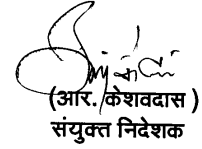 (आर. केशवदास )
संयुक्त निदेशक